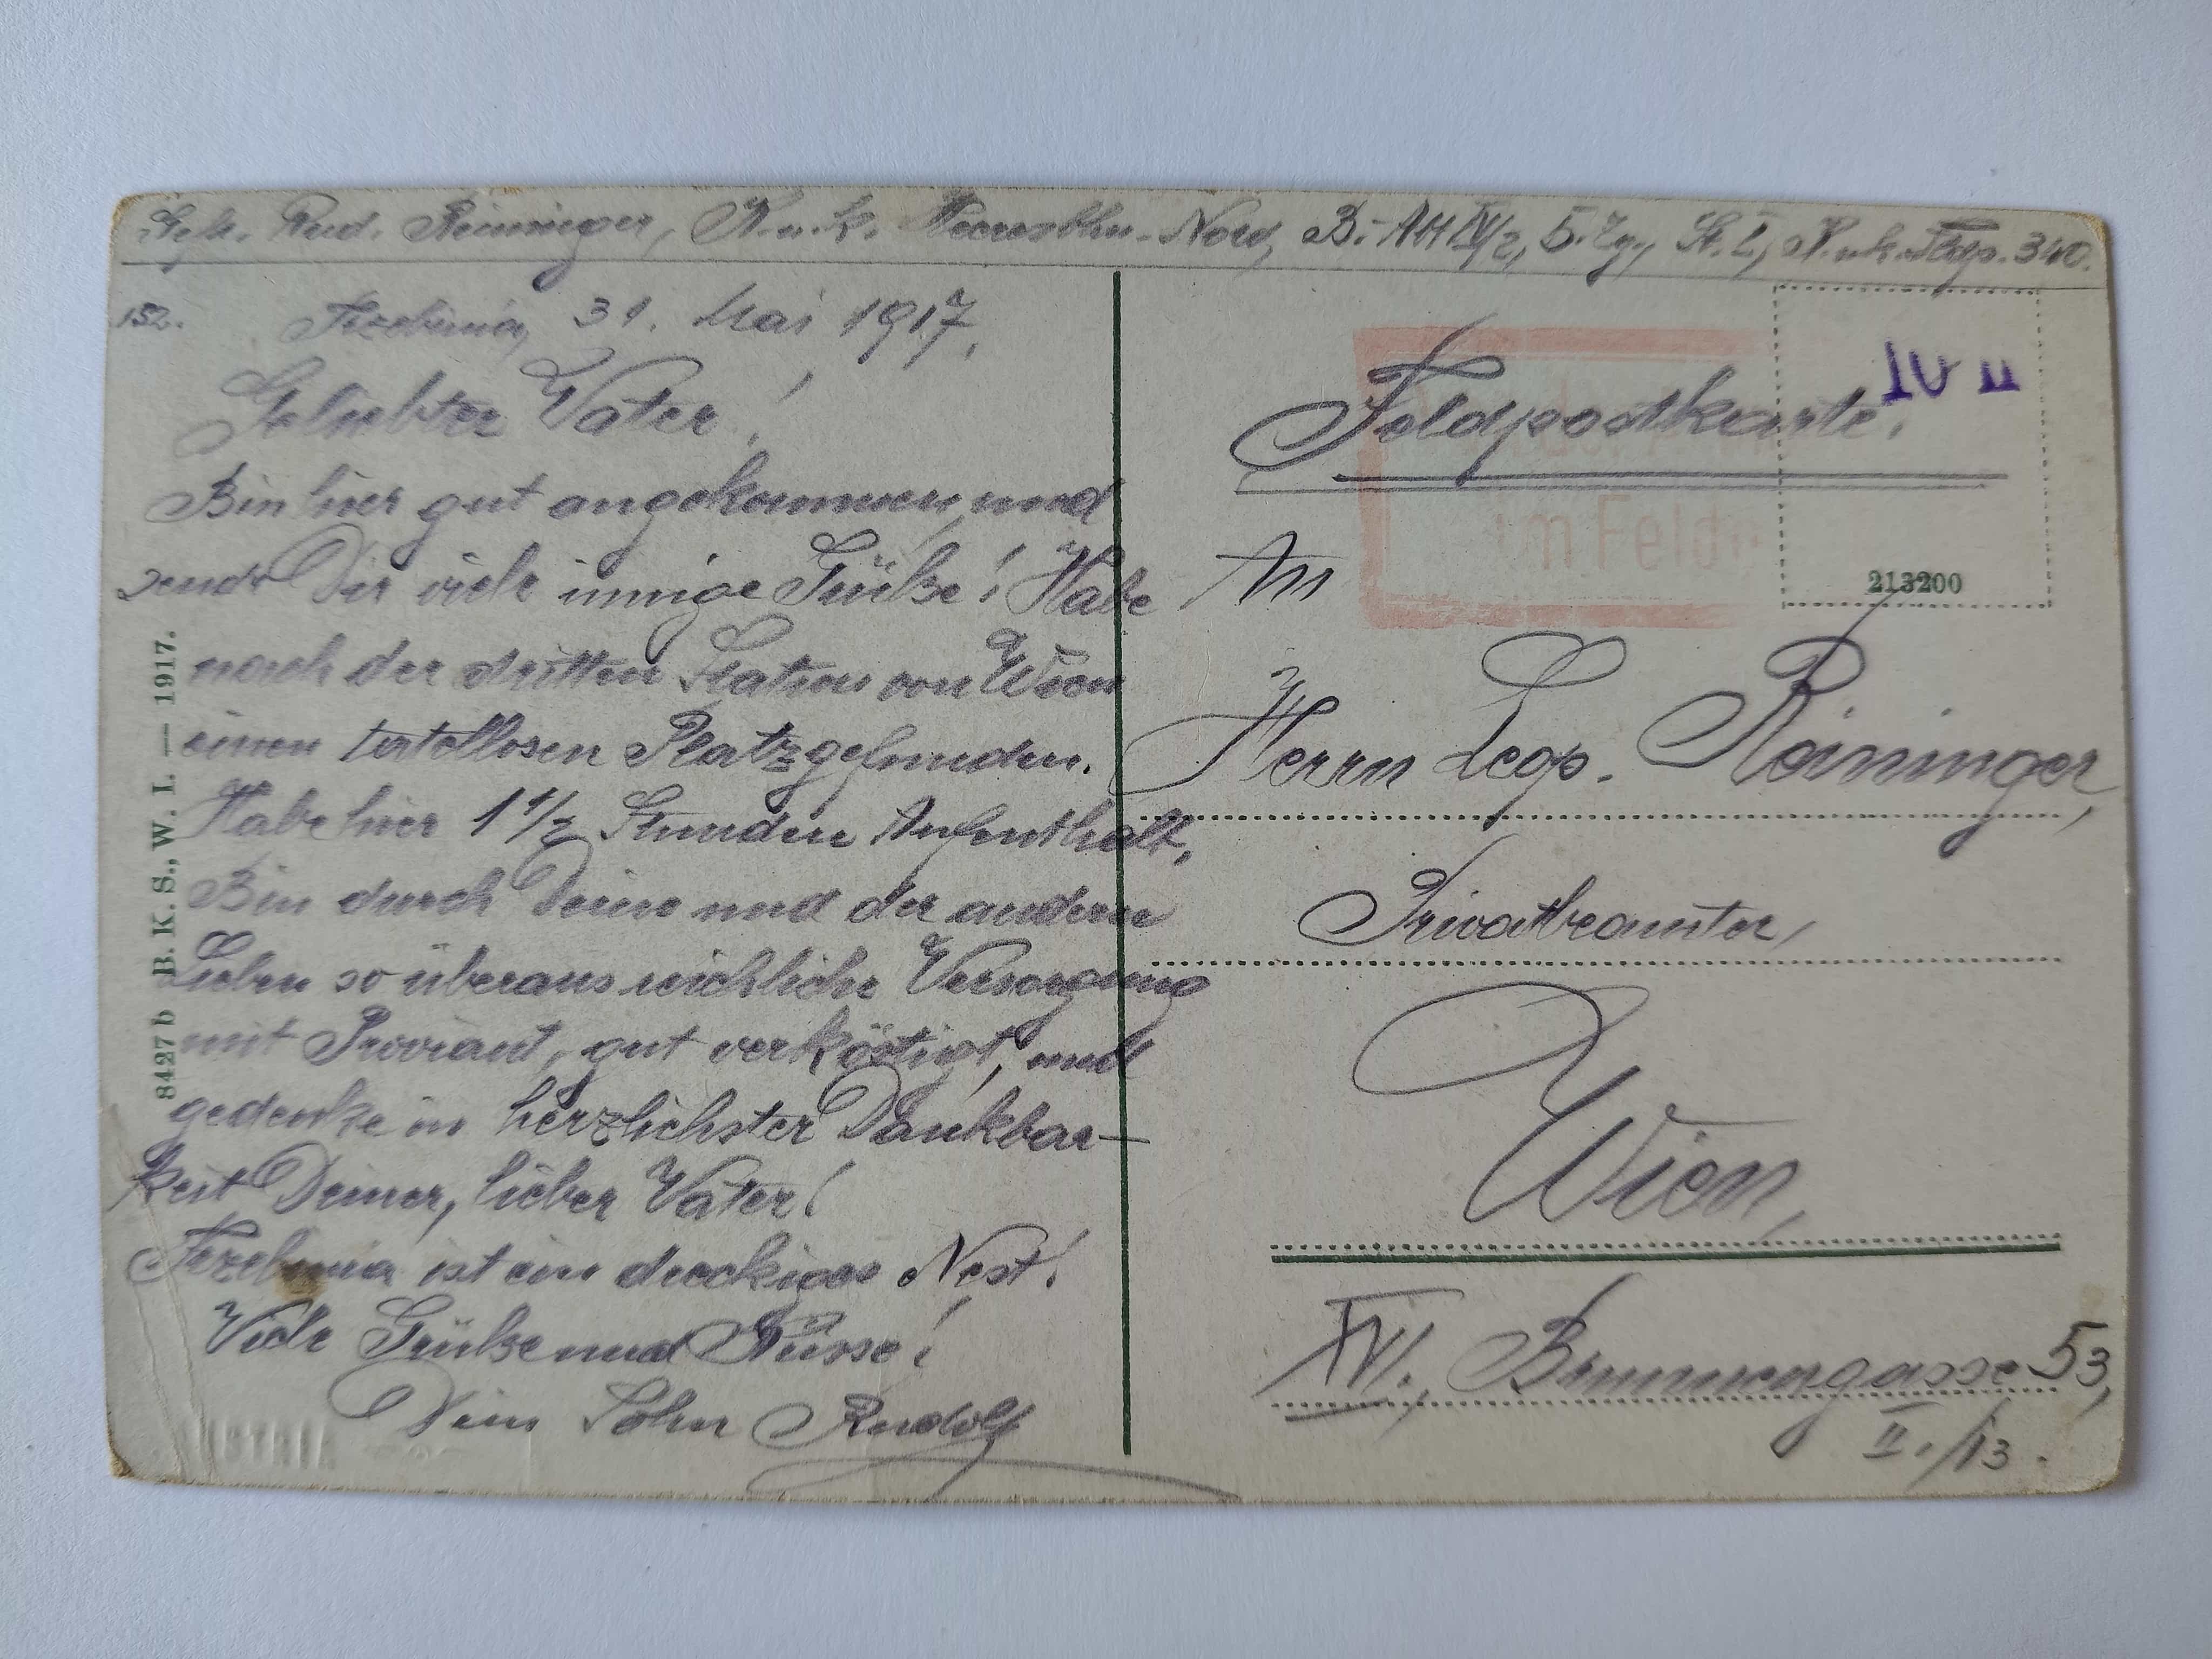 Rud. Reininger, K. u. k. Heeresbhn. Nord, B.-Abt IV/2, 5. Zg., St. I, K. u. k. Fldp. 340.
152.
Trzebinia, 31. Mai 1917.
Geliebter Vater!
Bin hier gut angekommen, und
sende Dir viele innige Grüße! Habe
nach der dritten Station von Wien
einen tadellosen Platz gefunden.
Habe hier 1 1/2 Stunden Aufenthalt.
Bin durch Deine und der anderen
Lieben so überaus reichliche Versorgung
mit Proviant, gut verköstigt, und
gedenke in herzlichster Dankbar-
keit Deiner, lieber Vater!
Trzebinia ist ein dreckiges Nest!
Viele Grüße und Küsse!
Dein Sohn Rudolf
8427 b B. K. S., W. I. — 1917.
Feldpostkarte.
10 II
im Felde
213200
An
Herrn Leop. Reininger,
Privatbeamter,
Wien,
XVI., Brunnengasse 53,
II./13.